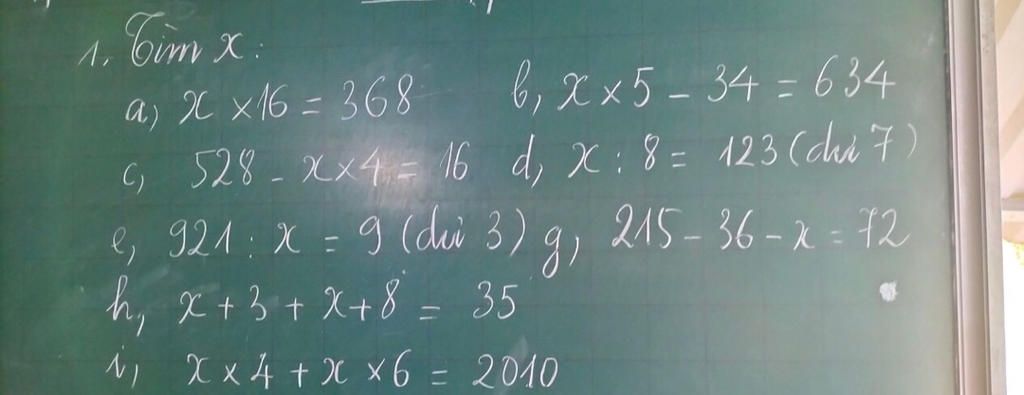 1. Tìm x:
a, x × 16 = 368 b, x × 5 - 34 = 634
c, 528 - x × 4 = 16 d, x : 8 = 123 (dư 7)
e, 921 : x = 9 (dư 3) g, 215 - 36 - x = 72
h, x + 3 + x + 8 = 35
i, x × 4 + x × 6 = 2010